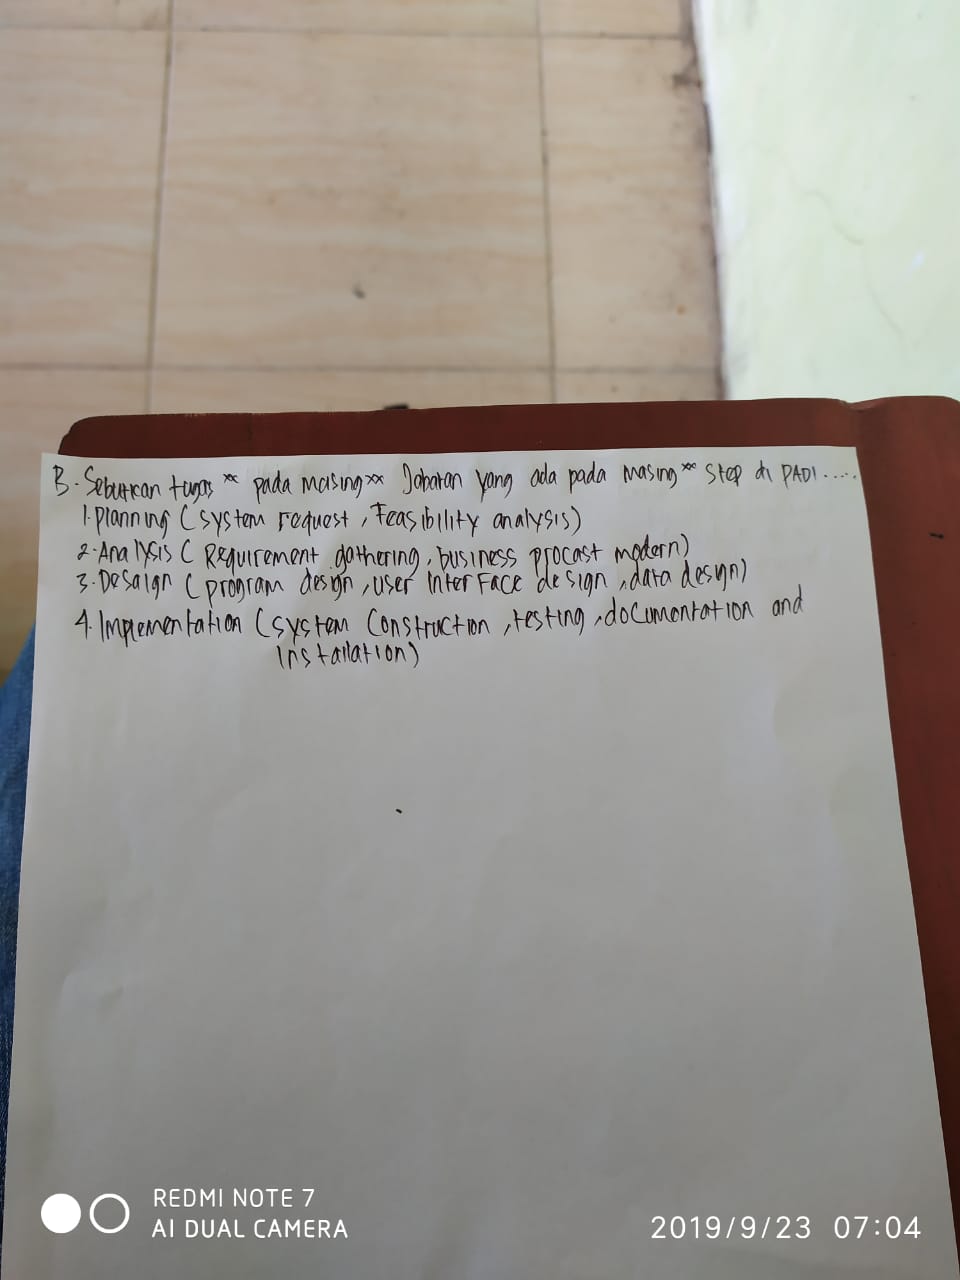 B. Sebutkan tugas ** pada masing** Jabatan yang ada pada masing** step di PADI.....
1. Planning (system request, Feasibility analysis)
2. Analysis (Requirement gathering, business procast modern)
3. Desaign (program design, user interface design, data design)
4. Implementation (system Construction, testing, documentation and
installation)
REDMI NOTE 7
AI DUAL CAMERA
2019/9/23 07:04